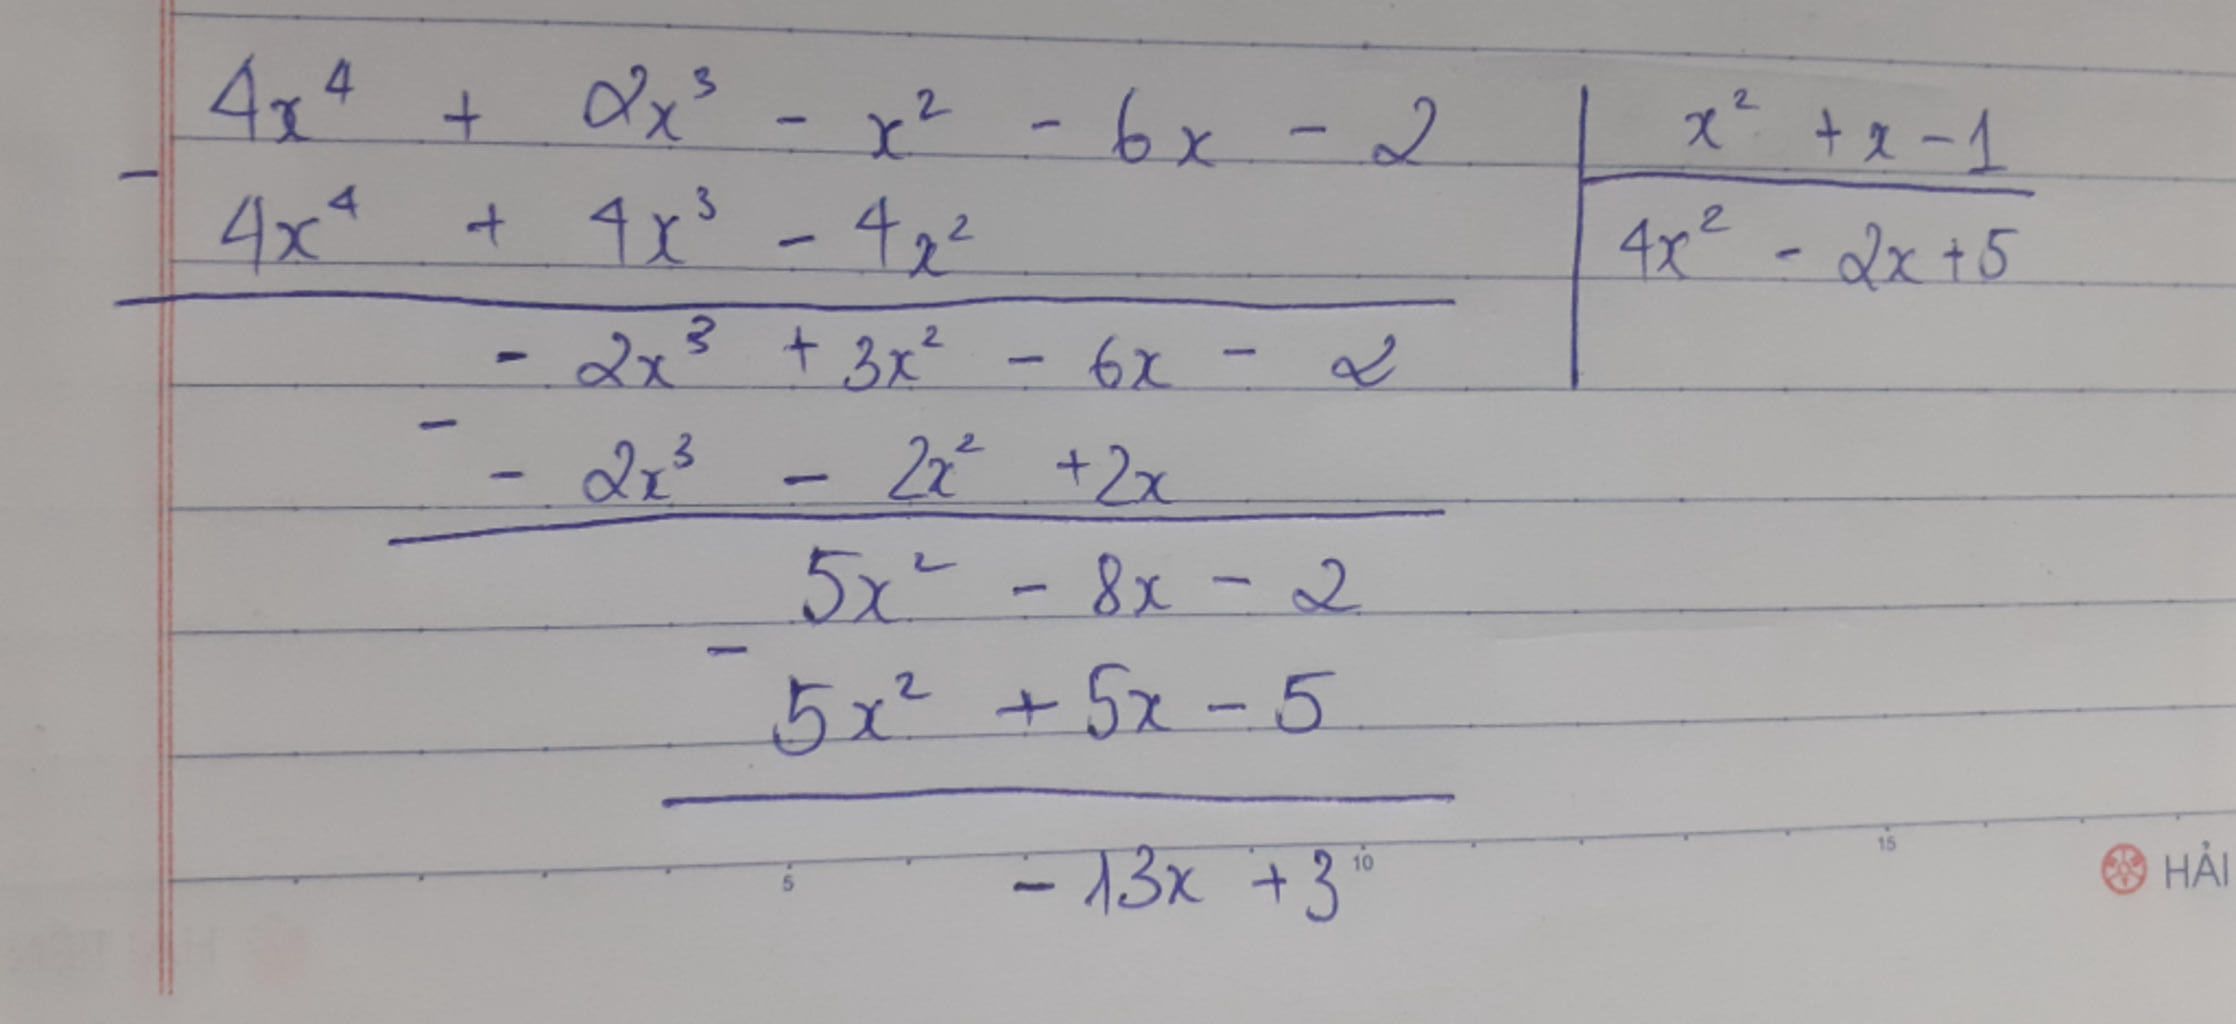 4x⁴ + 2x³ - x² - 6x - 2 | x² + x - 1
-
4x⁴ + 4x³ - 4x² | 4x² - 2x + 5
- 2x³ + 3x² - 6x - 2
-
- 2x³ - 2x² + 2x
5x² - 8x - 2
-
5x² + 5x - 5
- 13x + 3
5 10 15
HẢI